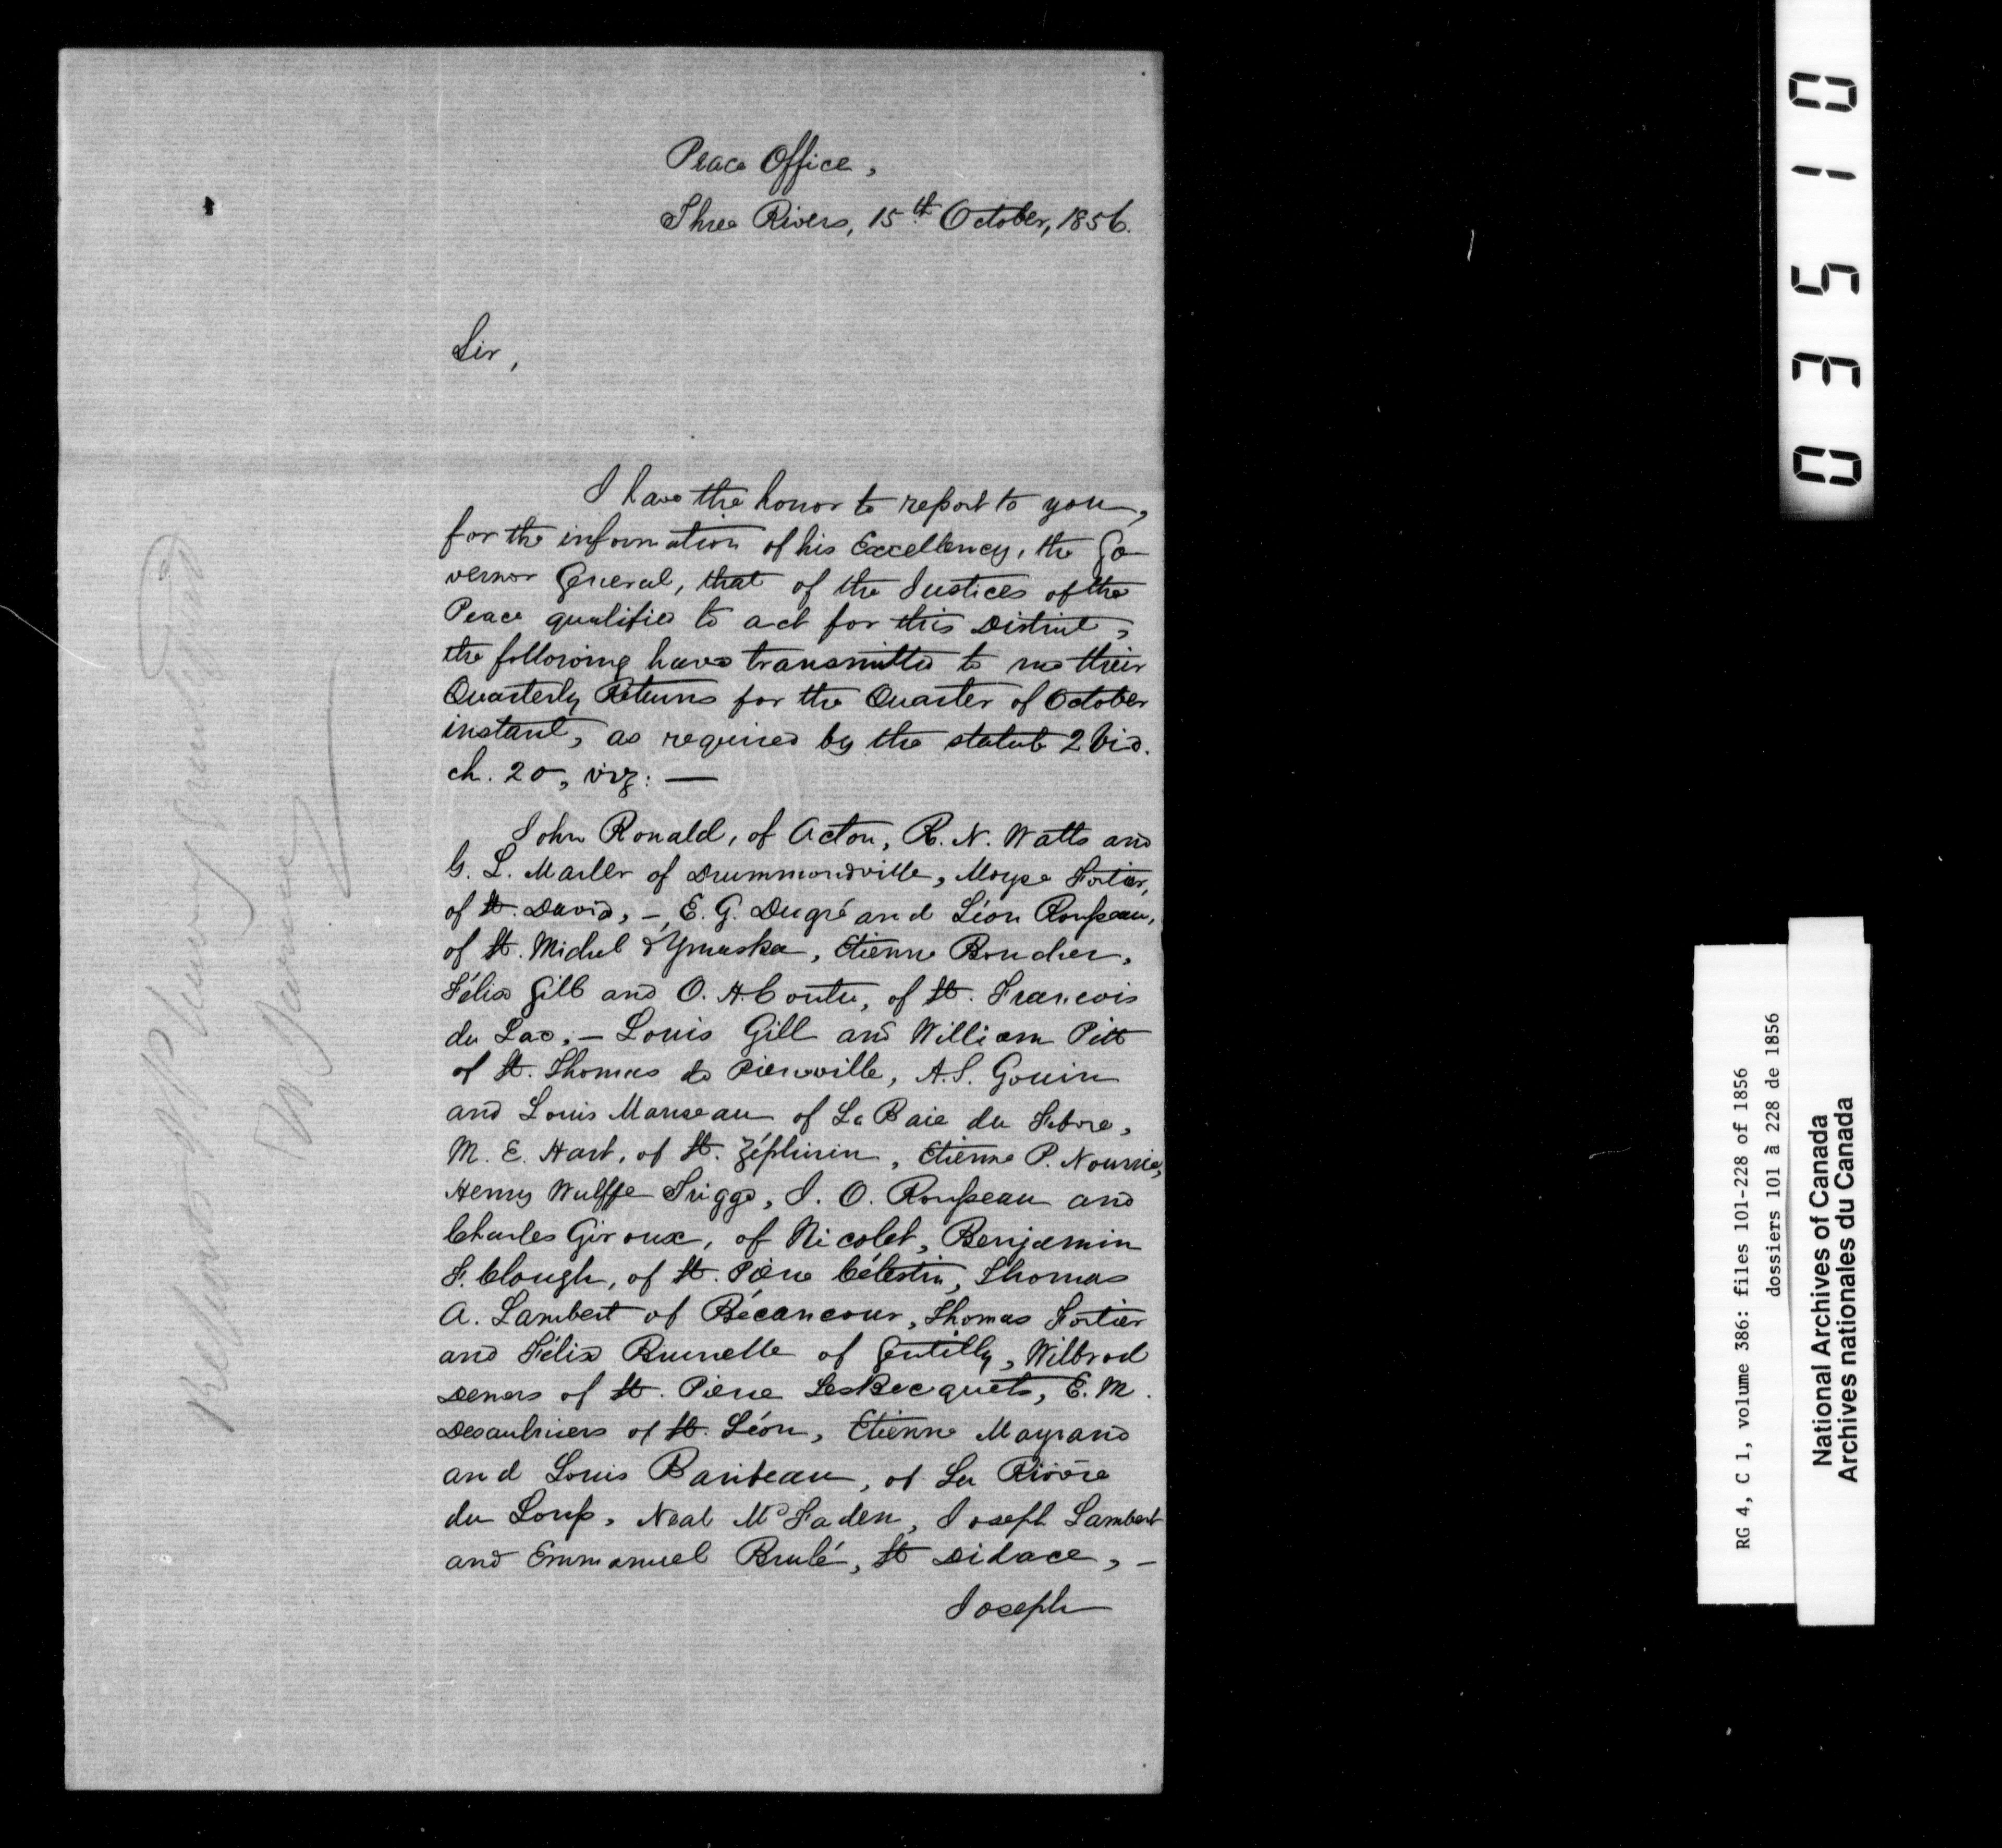 Peace Office,
Three Rivers, 15th October, 1856.
Sir,
I have the honor to report to you,
for the information of his Excellency, the Go
vernor General, that of the Justices of the
Peace qualified to act for this District,
the following have transmitted to me their
Quarterly Returns for the Quarter of October
instant, as required by the statute 2 Vic.
ch. 20, viz: —
John Ronald, of Acton, R. N. Watts and
G. L. Marler of Drummondville, Moyse Fortier,
of St. David, — E. G. Dugré and Léon Rousseau,
of St. Michel d'Ymaska, Etienne Boucher,
Félix Gill and O. H. Coutu, of St. Francois
du Lac, — Louis Gill and William Pitt
of St. Thomas de Pierreville, A. S. Gouin
and Louis Manseau of La Baie du Febvre,
M. E. Hart, of St. Zéphirin, Etienne P. Nourrie,
Henry Wulffe Trigge, J. O. Rousseau and
Charles Giroux, of Nicolet, Benjamin
F. Clough, of St. Pierre Célestin, Thomas
A. Lambert of Bécancour, Thomas Fortier
and Félix Brunelle of Gentilly, Wilbrod
Demers of St. Pierre Les Becquets, E. M.
Desaulniers of St. Léon, Etienne Mayrand
and Louis Baribeau, of La Rivière
du Loup, Neal McFaden, Joseph Lambert
and Emmanuel Brulé, St Didace, —
Joseph
03510
RG 4, C 1, volume 386: files 101-228 of 1856
dossiers 101 à 228 de 1856
National Archives of Canada
Archives nationales du Canada